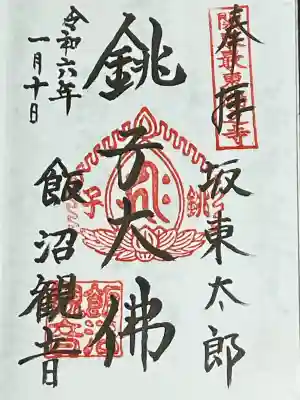 奉拝
坂東太郎
銚子大佛
飯沼観音
令和六年
一月十日
関東最東端寺
銚
子
飯沼
観音